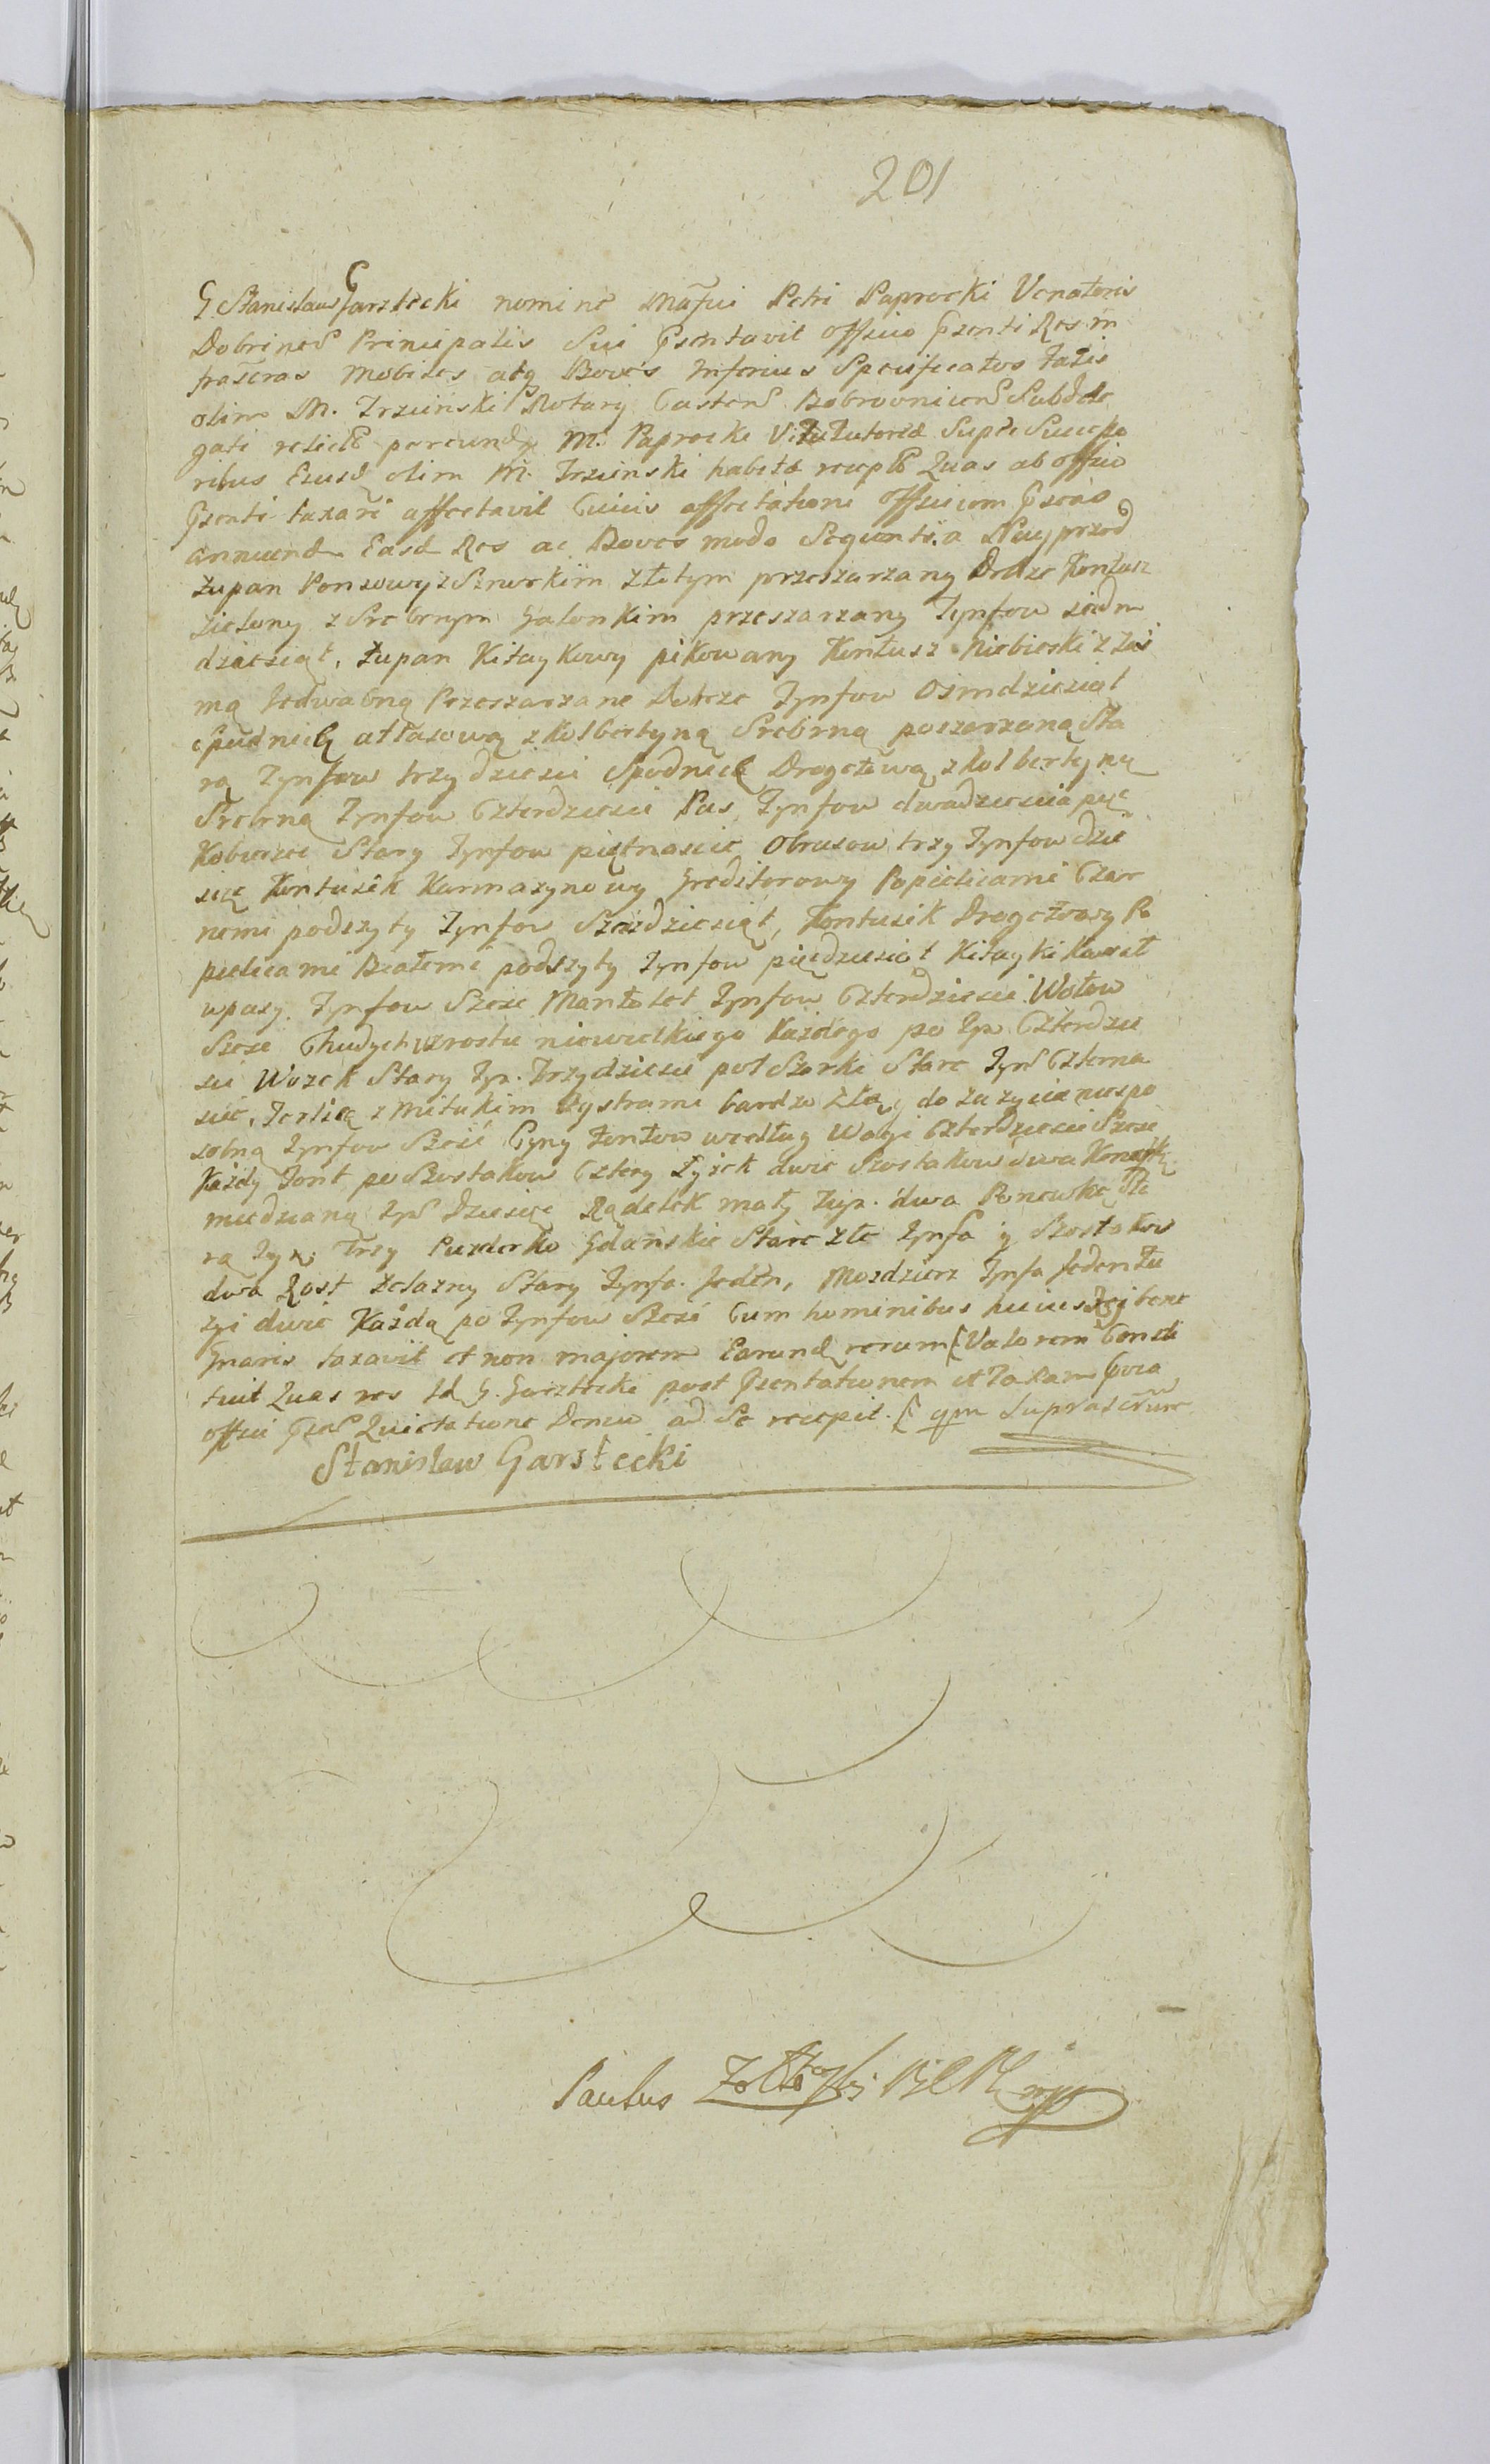 201
G. Stanislaus Garztecki nomine Mgfici Petri Paprocki Venatoris
Dobrinen Principalis Sui Psentavit officio Psenti Res in
frascras Mobiles atq Boves Inferius Specificatos fatis
olim M. Trzcinski Notary Castren Bobrovnicen Subdele
gati relict per eund M. Paprocki Tutored Super Successo
ribus Eiusd olim M. Trzcinski habita recept Quas ab officio
Psenti taxari affectavit Cuius affectationi Officium Psens
annuend Easd Res ac Boves modo Sequenti. a Nayprzod
Zupan Ponsowy z Sznurkiem Złotym przeszarzany Drdze Kontusz
zielony z Srebrnym Galonkiem przeszarzany Tynfow siedm
dziesiąt, Zupan Kitaykowy pikowany Kontusz Niebieski z Taś
mą Jedwabną Przeszarzane Dobrze Tynfow Ośmdziesiąt
Spudnicę atłasową z Kolbertyną Srebrną poszarzaną Sta
rą Tynfow trzydziesci Spodnicę Drogetową z kolbertyną
Srebrną Tynfow Czterdziesci Pas Tynfow dwadziescia pięć
Kobierzec Stary Tynfow piętnascie Obrusow trzy Tynfow dzie
sięć Kontusik Karmazynowy Greditorowy Popielicami Czar
nemi podszyty Tynfow Szesdziesiąt, Kontusik Drogetowy Po
pielicami Białemi podszyty Tynfow pięcdziesiąt Kitayki Kawał
w pasy. Tynfow Szesc Mantolet Tynfow Czterdziesci Wołow
Szesc Chudych wzrostu niewielkiego Każdego po Typ. Czterdzie
sci Wozek Stary Typ. Trzydziesci poł Szorki Stare Tynf Czterna
scie, Terlicę z Mitukiem Bystrami bardzo złą y do Zazycia niespo
sobną Tynfow Szesć Cyny Fontow według Wagi Czterdziesci Szesc
Każdy Font po Szostakow Cztery Łyżek dwie Szostakow dwa Konewkę
miedzianą Tynf Dziesięc Rądelek mały Typ. dwa Panewkę Sta
rą Tyn. Trzy Puzderko Gdańskie Stare złe Tynfa y Szostakow
dwa Rost żelazny Stary Tynfa. Jeden, Mozdzierz Tynfa Jeden Łu
zyi dwie Każdą po Tynfow Szesć Cum hominibus huius Rej bene
gnaris taxavit et non majorem Earund rerum Valorem Consti
tuit Quas res Id G. Garztecki post Psentationem et Taxam Pvia
officii Psen Quietatione Denuo ad Se recepit. qpm Suprascrūnt
Stanisław Garstecki
Paulus